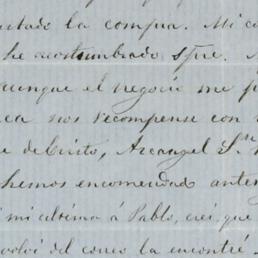 la compra. Mi
he acostumbrado spre.
aunque el negocio me p
nos recompense con
de Cristo, Arcangel Sn
hemos encomendado ante
mi ultima á Pablo, crei que
del correo la encontré